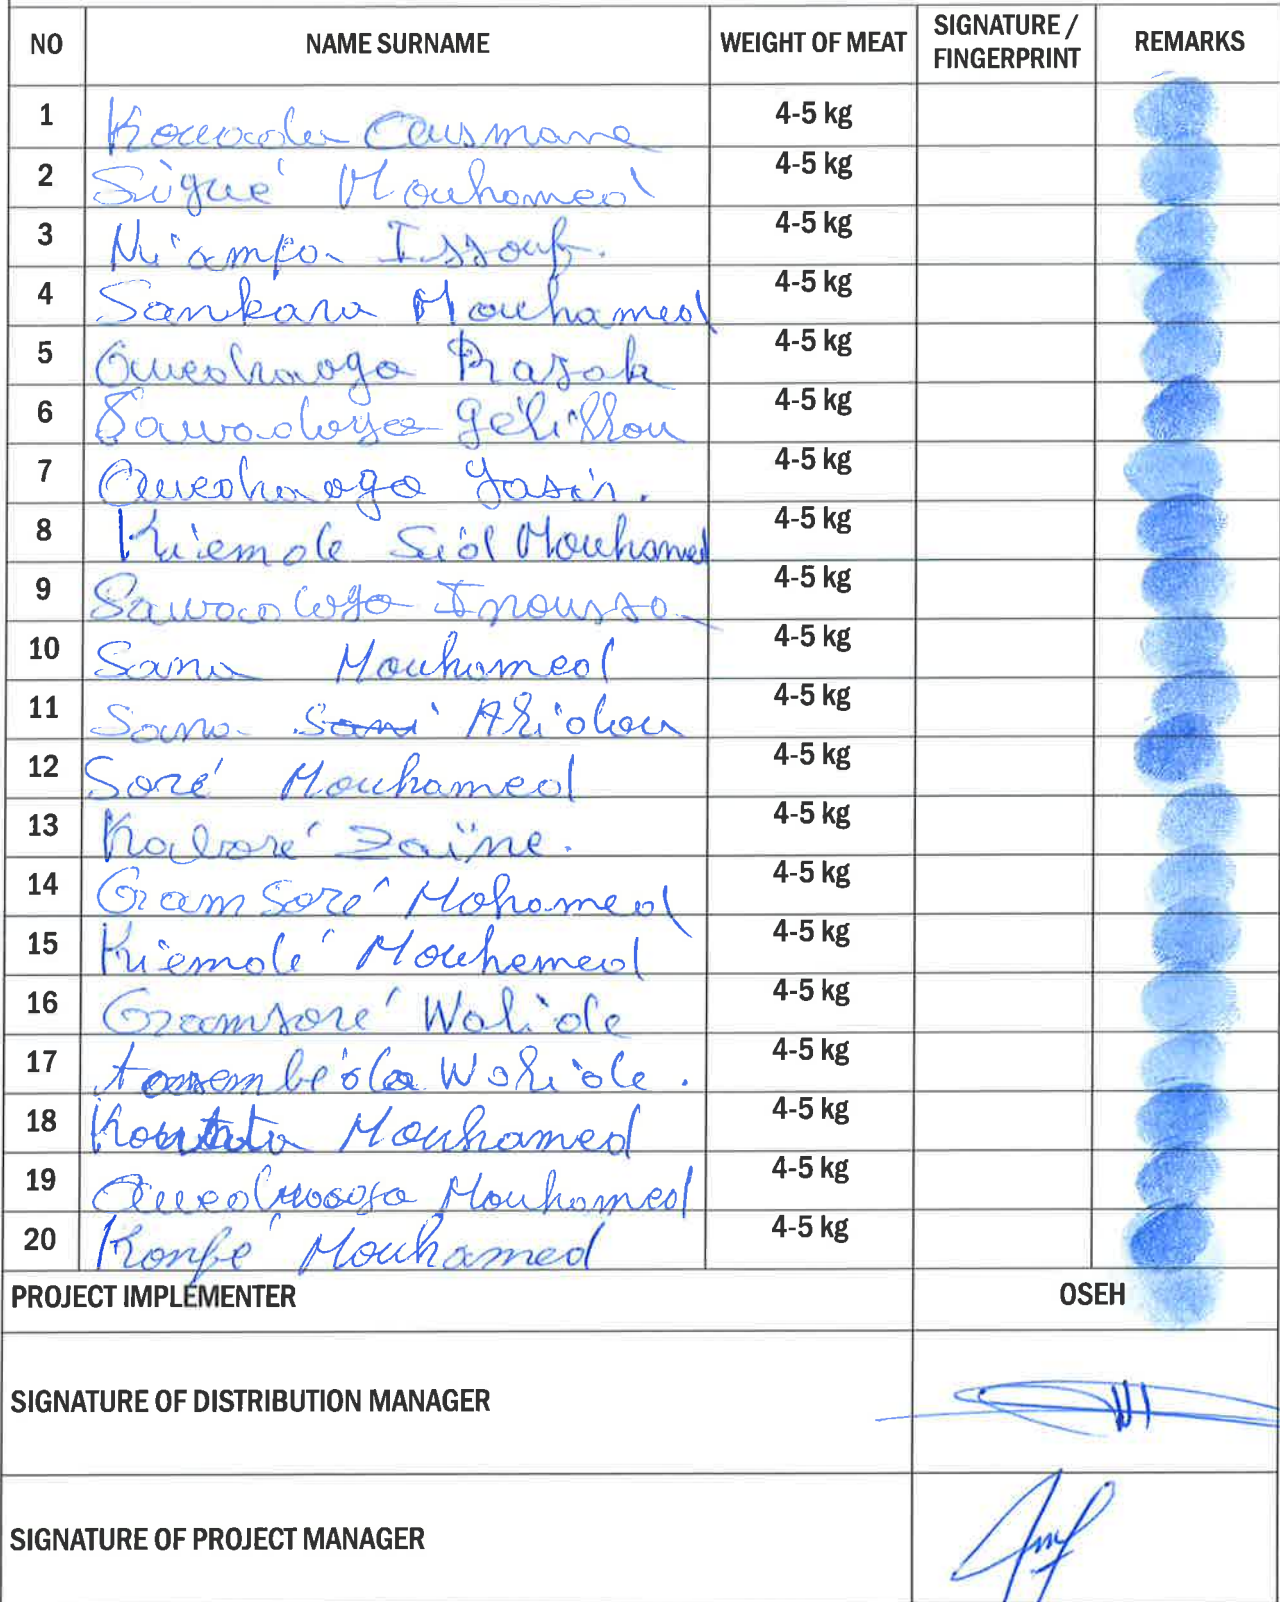 NO NAME SURNAME WEIGHT OF MEAT SIGNATURE / FINGERPRINT REMARKS
1 Kouanda Ousmane 4-5 kg
2 Sigué Mouhamed 4-5 kg
3 Niampa Issouf. 4-5 kg
4 Sankara Mouhamed 4-5 kg
5 Ouedraogo Rasak 4-5 kg
6 Sawadogo 4-5 kg
7 Ouedraogo Yasin. 4-5 kg
8 Kiemdé Sid Mouhamed 4-5 kg
9 Sawadogo Inoussa 4-5 kg
10 Sana Mouhamed 4-5 kg
11 Sana Sani Alidou 4-5 kg
12 Soré Mouhamed 4-5 kg
13 Kaboré Zaïne. 4-5 kg
14 Gram Soré Mohamed 4-5 kg
15 Kiemdé Mouhemed 4-5 kg
16 Gramsoré Walide 4-5 kg
17 Walide. 4-5 kg
18 Mouhamed 4-5 kg
19 Ouedraogo Mouhamed 4-5 kg
20 Konfé Mouhamed 4-5 kg
PROJECT IMPLEMENTER OSEH
SIGNATURE OF DISTRIBUTION MANAGER
SIGNATURE OF PROJECT MANAGER